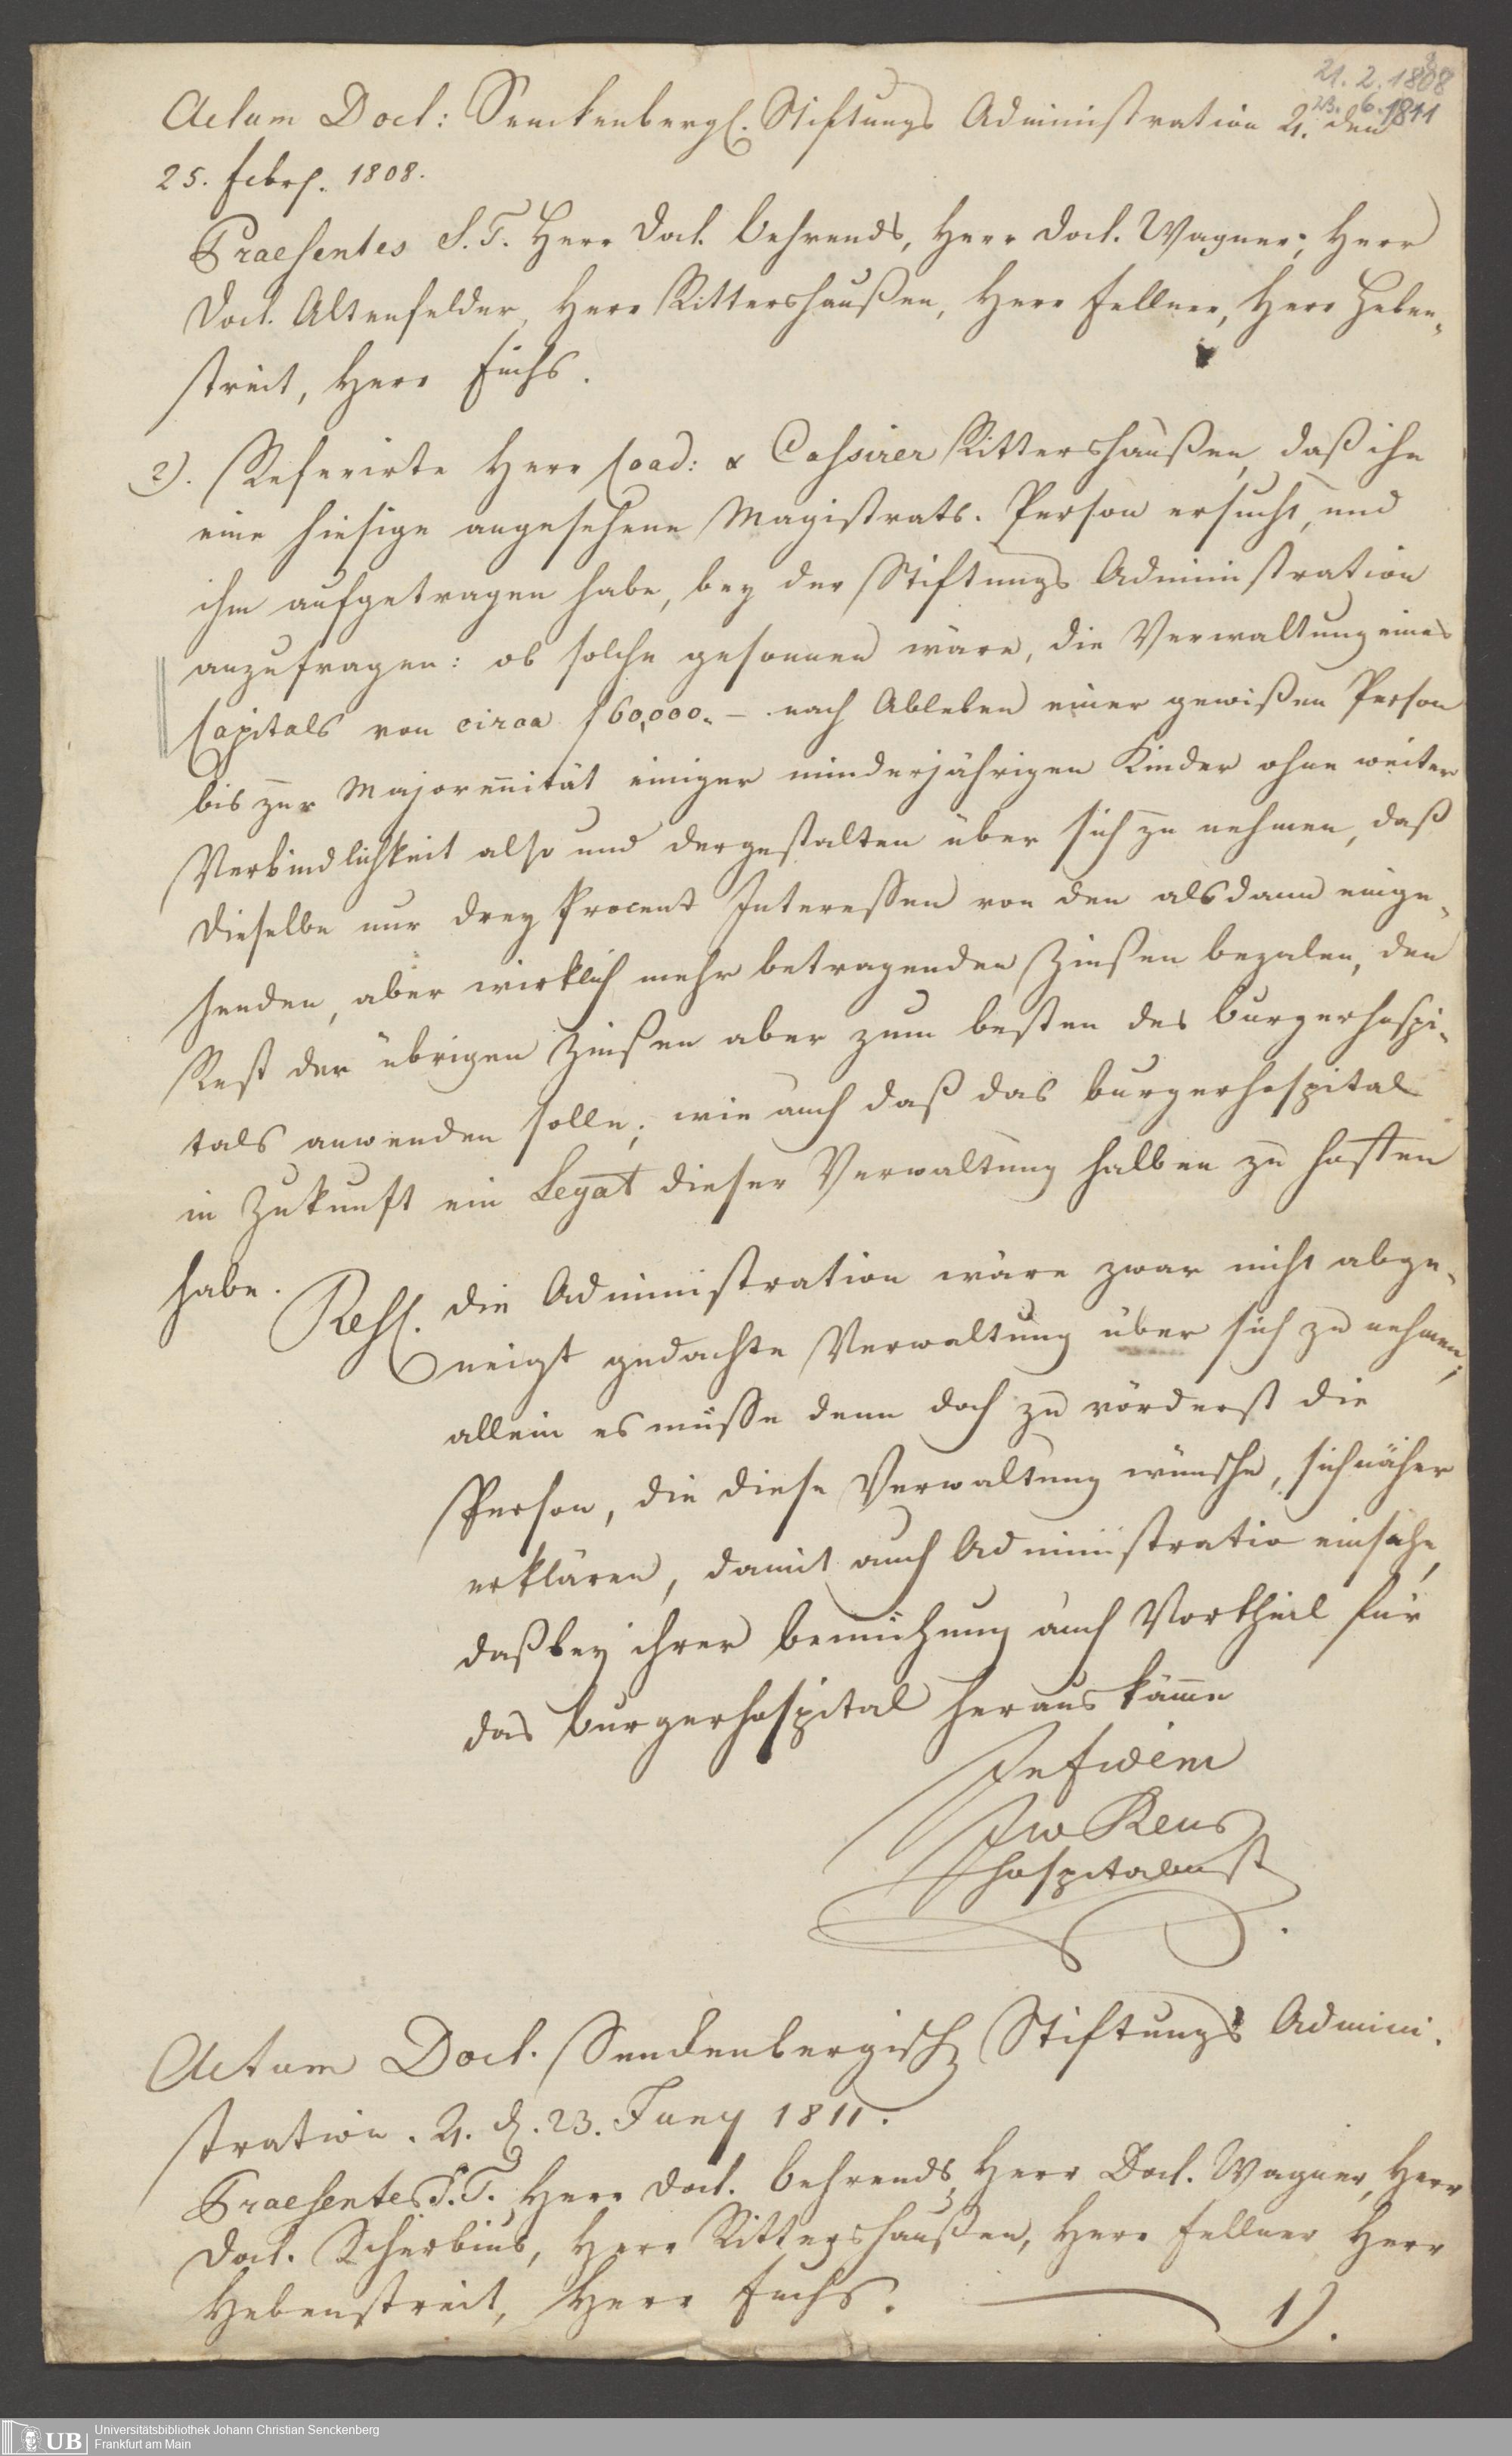 21. 2. 1808
23. 6. 1811
Actum Doct: Senckenbergl. Stiftungs Administration 2. den
25. febrs. 1808.
Praesentes S. T. Herr Doct. Behrends, Herr Doct. Wagner, Herr
Doct. Altenfelder, Herr Rittershaußen, Herr Fellner, Herr Heben-
streit, Herr Fuchs.
2). Referirte Herr Coad: & Cassirer Rittershaußen, daß ihn
eine hiesige angesehene Magistrats-Person ersucht, und
ihm aufgetragen habe, bey der Stiftungs Administration
anzufragen: ob solche gesonnen wäre, die Verwaltung eines
Capitals von circa f 60,000.- nach Ableben einer gewißen Person
bis zur Majorennität einiger minderjährigen Kinder ohne weitere
Verbindlichkeit also und dergestalten über sich zu nehmen, daß
dieselbe nur drey Procent Interessen von den alsdann einge-
henden, aber wirklich mehr betragenden Zinßen bezalen, den
Rest der übrigen Zinßen aber zum besten des Burgerhospi-
tals anwenden solle; wie auch daß das Burgerhospital
in Zukunft ein Legat dieser Verwaltung halben zu hoffen
habe.
Resl. Die Administration wäre zwar nicht abge-
neigt gedachte Verwaltung über sich zu nehmen;
allein es müsse denn doch zu vörderst die
Person, die diese Verwaltung wünsche, sich näher
erklären, damit auch Administratio einsehe,
daß bey ihrer Bemühung auch Vortheil für
das Burgerhospital heraus käme
In fidem
Reus
Hospitalmstr
Actum Doct. Senckenbergisch Stiftungs Admini-
stration. 2. d. 23. Juny 1811.
Praesentes S. T. Herr Doct. Behrends, Herr Doct. Wagner, Herr
Doct. Scherbius, Herr Rittershaußen, Herr Fellner Herr
Hebenstreit, Herr Fuchs. 1).
UB Universitätsbibliothek Johann Christian Senckenberg
Frankfurt am Main